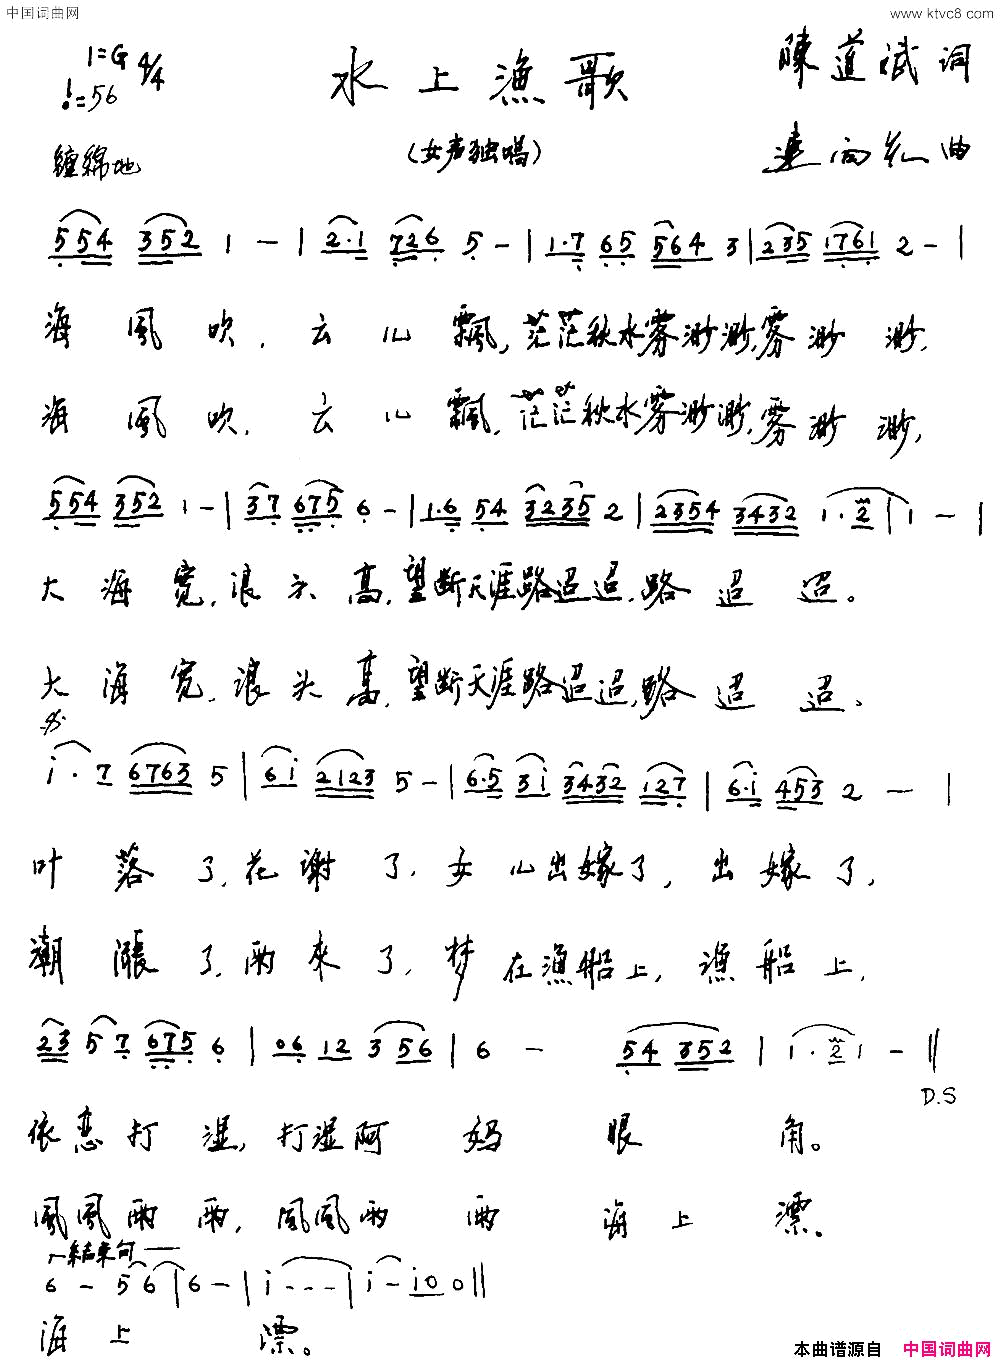 中国词曲网 www.ktvc8.com
1=G 4/4 水上漁歌 陳道斌词
♩=56
缠綿地 (女声独唱) 連向先曲
554 352 1 - | 2·1 726 5 - | 1·7 65 564 3 | 235 1761 2 - |
海風吹，云儿飄，茫茫秋水雾渺渺，雾渺渺，
海風吹，云儿飄，茫茫秋水雾渺渺，雾渺渺，
554 352 1 - | 37 675 6 - | 1·6 54 3235 2 | 2354 3432 1·2 | 1 - |
大海宽，浪头高，望断天涯路迢迢，路迢迢。
大海宽，浪头高，望断天涯路迢迢，路迢迢。
i·7 6763 5 | 6i 2123 5 - | 6·5 3i 3432 127 | 6·i 453 2 - |
叶落了，花谢了，女儿出嫁了，出嫁了，
潮漲了，雨來了，梦在漁船上，漁船上，
23 5 7 675 6 | 06 12 3 56 | 6 - 54 352 | 1·2 1 - ||
D.S
依恋打湿，打湿阿妈眼角。
風風雨雨，風風雨雨海上漂。
结束句
6 - 5 6 | 6 - | i - - - | i - i 0 0 ||
海上漂。
本曲谱源自 中国词曲网